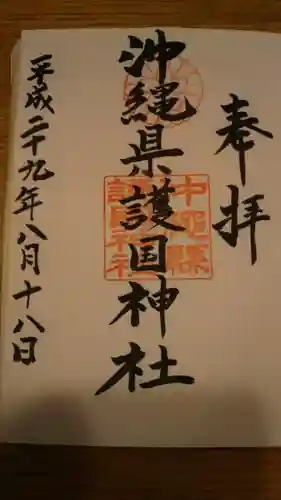 奉拝
沖縄県護国神社
平成二十九年八月十八日
沖縄縣護國神社